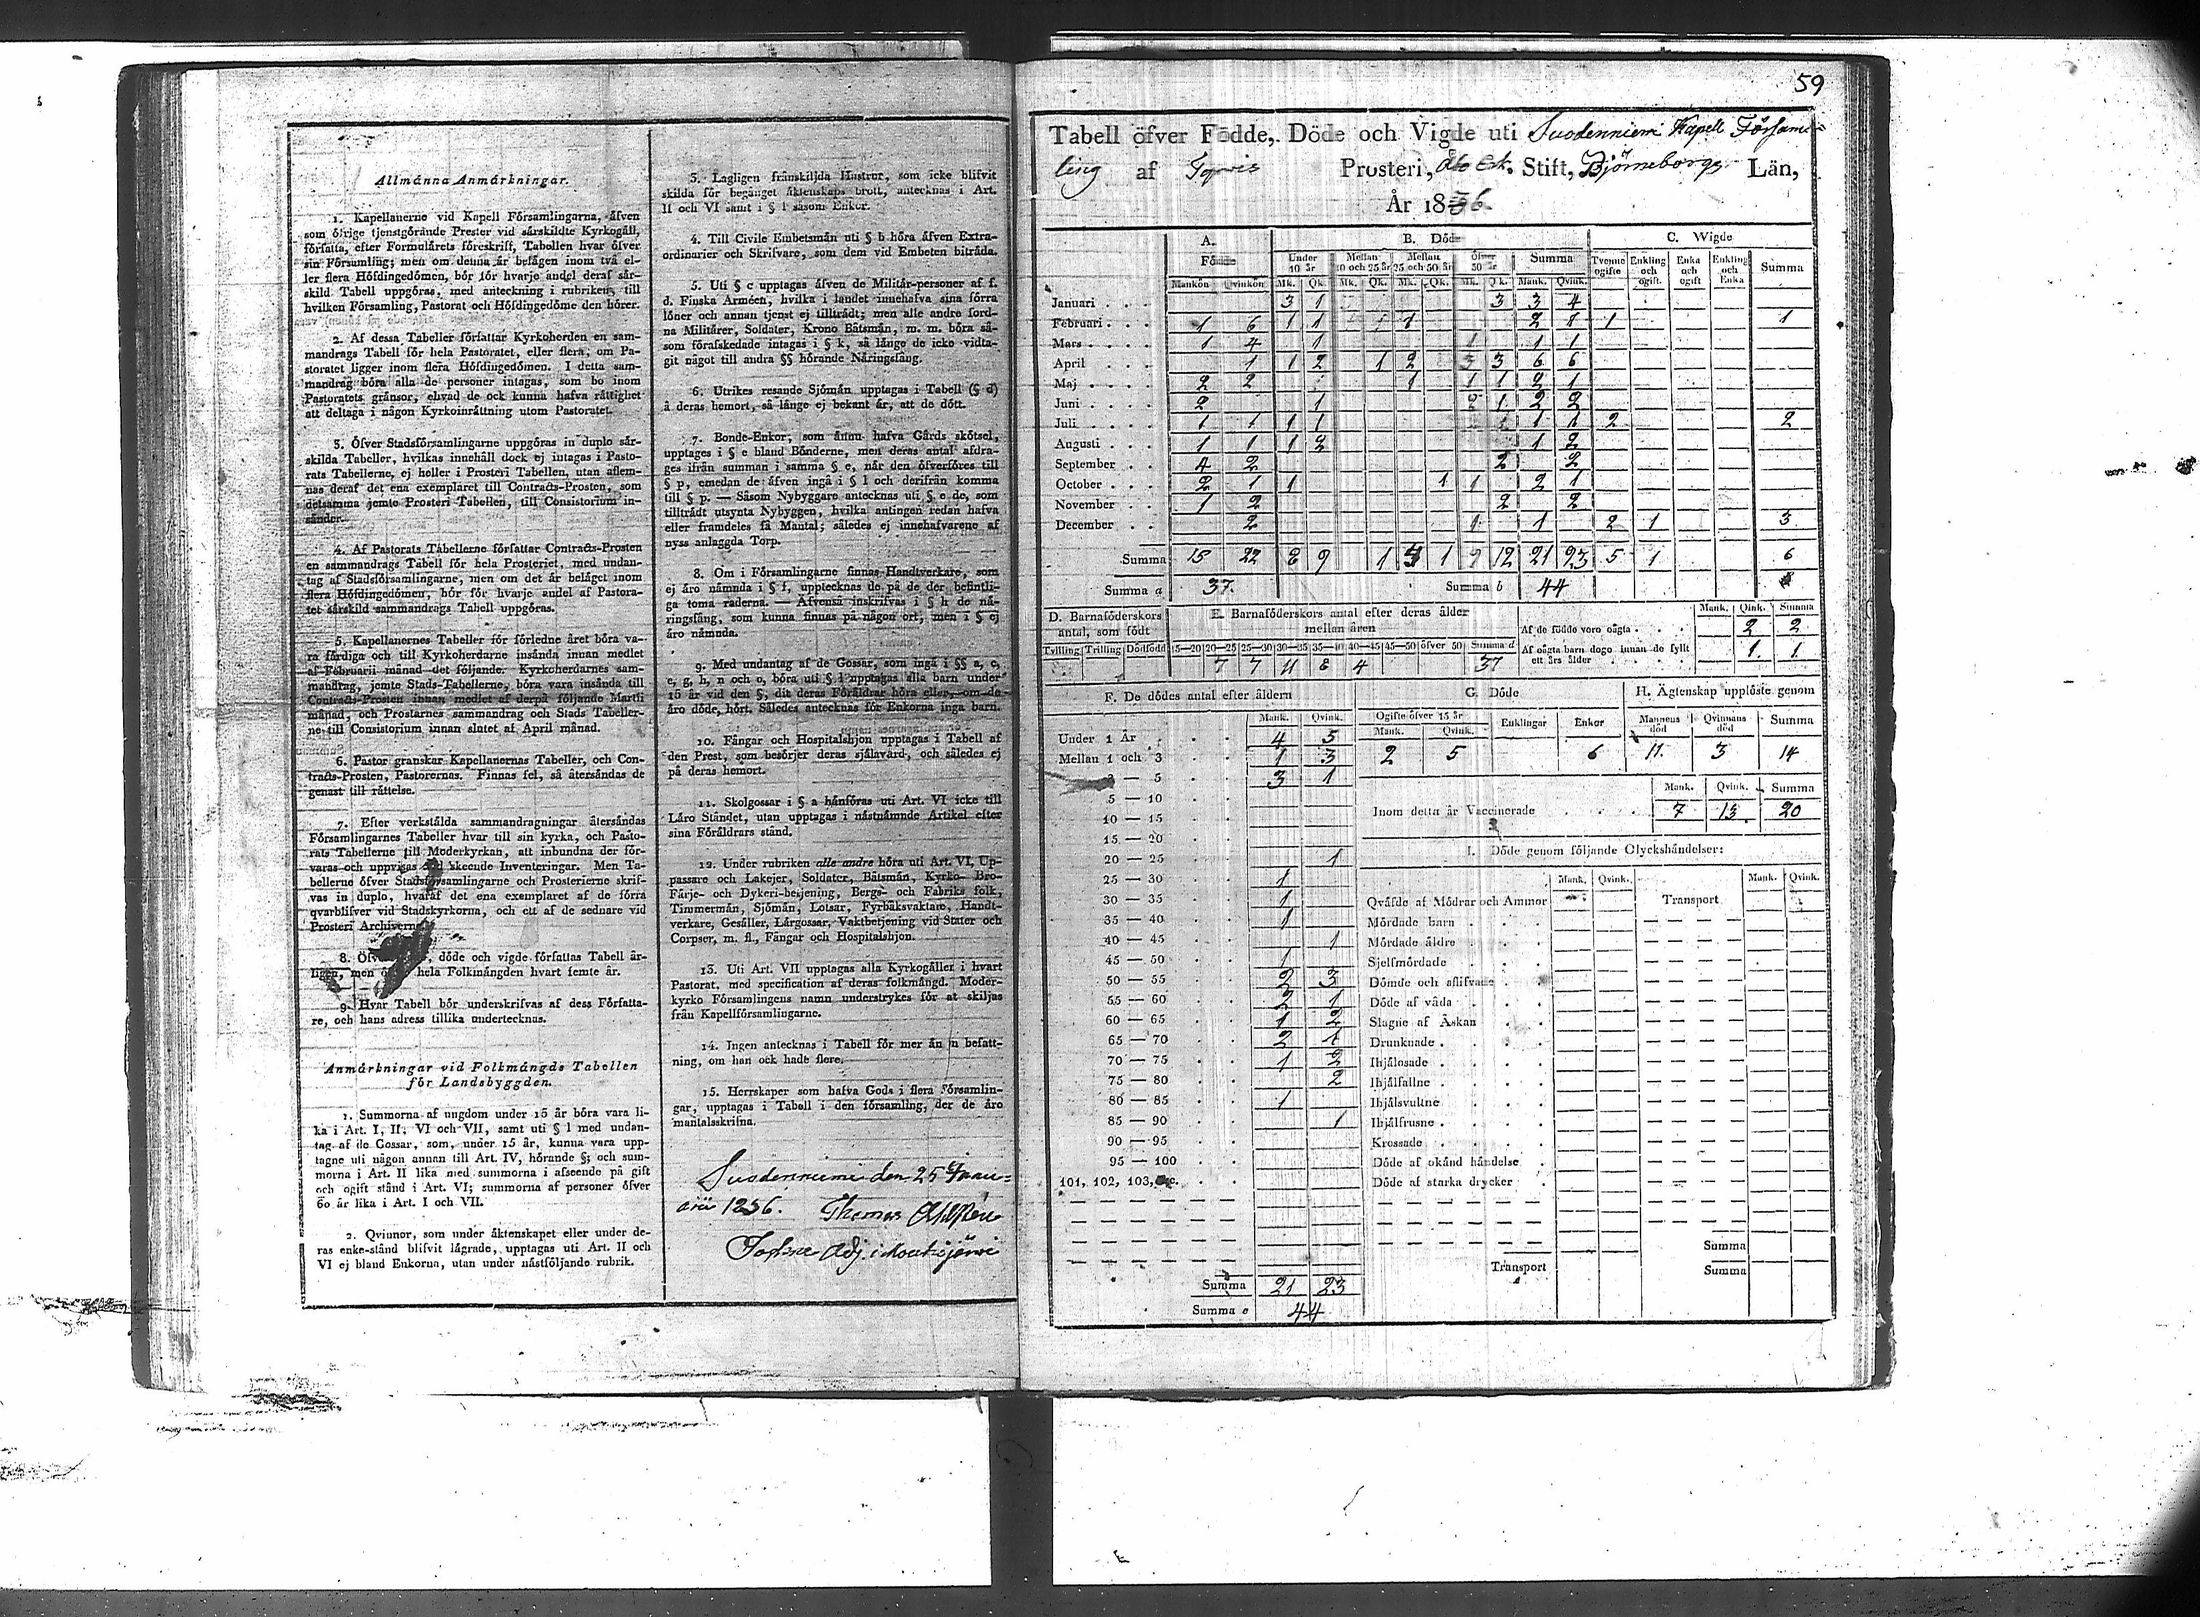 Allmänna Anmärkningar.
1. Kapellanerne vid Kapell Församlingarna, äfven
som öfrige tjenstgörande Prester vid särskildte Kyrkogäll,
författa, efter Formulärets föreskrift, Tabellen hvar öfver
sin Församling; men om denna är belägen inom två el-
ler flera Höfdingedömen, bör för hvarje andel deraf sär-
skild Tabell uppgöras, med anteckning i rubriken, till
hvilken Församling, Pastorat och Höfdingedöme den hörer.
2. Af dessa Tabeller författar Kyrkoherden en sam-
mandrags Tabell för hela Pastoratet, eller flera, om Pa-
storatet ligger inom flera Höfdingedömen. I detta sam-
mandrag böra alla de personer intagas, som bo inom
Pastoratets gränsor, ehvad de ock kunna hafva rättighet
att deltaga i någon Kyrkoinrättning utom Pastoratet.
3. Öfver Stadsförsamlingarne uppgöras in duplo sär-
skilda Tabeller, hvilkas innehåll dock ej intages i Pasto-
rats Tabellerne, ej heller i Prosteri Tabellen, utan aflem-
nas deraf det ena exemplaret till Contracts-Prosten, som
detsamma jemte Prosteri Tabellen, till Consistorium in-
sänder.
4. Af Pastorats Tabellerne författar Contracts-Prosten
en sammandrags Tabell för hela Prosteriet, med undan-
tag af Stadsförsamlingarne, men om det är beläget inom
flera Höfdingedömen, bör för hvarje andel af Pastora-
tet särskild sammandrags Tabell uppgöras.
5. Kapellanernes Tabeller för förledne året böra va-
ra färdiga och till Kyrkoherdarne insända innan medlet
af Februarii månad det följande. Kyrkoherdarnes sam-
mandrag, jemte Stads-Tabellerne, böra vara insända till
Contracts-Prosten innan medlet af derpå följande Martii
månad, och Prostarnes sammandrag och Stads Tabeller-
ne till Consistorium innan slutet af April månad.
6. Pastor granskar Kapellanernas Tabeller, och Con-
tracts-Prosten, Pastorernas. Finnas fel, så återsändas de
genast till rättelse.
7. Efter verkställda sammandragningar återsändas
Församlingarnes Tabeller hvar till sin kyrka, och Pasto-
rats Tabellerne till Moderkyrkan, att inbundna der för-
varas och uppvisas skeende Inventeringar. Men Ta-
bellerne öfver Stadsförsamlingarne och Prosterierne skrif-
vas in duplo, hvaraf det ena exemplaret af de förra
qvarblifver vid Stadskyrkorna, och ett af de sednare vid
Prosteri Archiverne.
8. döde och vigde författas Tabell är-
ligen, men hela Folkmängden hvart femte år.
9. Hvar Tabell bör underskrifvas af dess Författa-
re, och hans adress tillika undertecknas.
Anmärkningar vid Folkmängds Tabellen
för Landsbyggden.
1. Summorna af ungdom under 15 år böra vara li-
ka i Art. I, II, VI och VII, samt uti § l med undan-
tag af de Gossar, som, under 15 år, kunna vara upp-
tagne uti någon annan till Art. IV, hörande §; och sum-
morna i Art. II lika med summorna i afseende på gift
och ogift stånd i Art. VI; summorna af personer öfver
60 år lika i Art. I och VII.
2. Qvinnor, som under äktenskapet eller under de-
ras enke-stånd blifvit lägrade, upptagas uti Art. II och
VI ej bland Enkorna, utan under nästföljande rubrik.
3. Lagligen frånskiljda Hustrur, som icke blifvit
skilda för beganget äktenskaps brott, antecknas i Art.
II och VI samt i § l såsom Enkor.
4. Till Civile Embetsmän uti § b höra äfven Extra-
ordinarier och Skrifvare, som dem vid Embeten biträda.
5. Uti § c upptagas äfven de Militär-personer af f.
d. Finska Arméen, hvilka i landet innehafva sina förra
löner och annan tjenst ej tillträdt; men alle andre ford-
na Militärer, Soldater, Krono Båtsmän, m. m. böra så-
som förafskedade intagas i § k, så länge de icke vidta-
git något till andra §§ hörande Näringsfång.
6. Utrikes resande Sjömän upptagas i Tabell (§ d)
å deras hemort, så länge ej bekant är, att de dött.
7. Bonde-Enkor, som ännu hafva Gårds skötsel,
upptages i § e bland Bönderne, men deras antal afdra-
ges ifrån summan i samma § e, när den öfverföres till
§ p, emedan de äfven ingå i § l och derifrån komma
till § p. — Såsom Nybyggare antecknas uti § e de, som
tillträdt utsynta Nybyggen, hvilka antingen redan hafva
eller framdeles få Mantal; således ej innehafvarene af
nyss anlaggda Torp.
8. Om i Församlingarne finnas Handtverkare, som
ej äro nämnda i § f, upptecknas de på de der befintli-
ga toma raderna. — Äfvenså inskrifvas i § h de nä-
ringsfång, som kunna finnas på någon ort, men i § ej
äro nämnda.
9. Med undantag af de Gossar, som ingå i §§ a, c,
e, g, h, n och o, böra uti § l upptagas alla barn under
15 år vid den §, dit deras Föräldrar höra eller, om de
äro döde, hört. Således antecknas för Enkorna inga barn.
10. Fångar och Hospitalshjon upptagas i Tabell af
den Prest, som besörjer deras själavård, och således ej
på deras hemort.
11. Skolgossar i § a hänföras uti Art. VI icke till
Läro Ståndet, utan upptagas i nästnämnde Artikel efter
sina Föräldrars stånd.
12. Under rubriken alle andre höra uti Art. VI, Up-
passare och Lakejer, Soldater, Båtsmän, Kyrko- Bro-
Färje- och Dykeri-betjening, Bergs- och Fabriks folk,
Timmermän, Sjömän, Lotsar, Fyrbåksvaktare, Handt-
verkare, Gesäller, Lärgossar, Vaktbetjening vid Stater och
Corpser, m. fl., Fångar och Hospitalshjon.
13. Uti Art. VII upptagas alla Kyrkogäller i hvart
Pastorat, med specification af deras folkmängd. Moder-
kyrko Församlingens namn understrykes för at skiljas
från Kapellförsamlingarne.
14. Ingen antecknas i Tabell för mer än en befatt-
ning, om han ock hade flere.
15. Herrskaper som hafva Gods i flera Församlin-
gar, upptagas i Tabell i den församling, der de äro
mantalsskrifna.
Suodenniemi den 25 Janu-
arii 1856. Thomas
Adj. i Mouhijärvi
59
Tabell öfver Födde, Döde och Vigde uti Suodenniemi Kapell Försam-
ling af Tyrvis Prosteri, Åbo Erk. Stift, Björneborgs Län,
År 1856.
A. Födde B. Döde C. Wigde
Under 10 år Mellan 10 och 25 år Mellan 25 och 50 år Öfver 50 år Summa Tvenne ogifte Enkling och ogift. Enka och ogift Enkling och Enka Summa
Mankön Qvinkön Mk. Qk. Mk. Qk. Mk. Qk. Mk. Qk. Mank. Qvink.
Januari 3 1 3 3 4
Februari 1 6 1 1 1 2 1 1 1
Mars 1 4 1 1 1 1
April 1 1 2 1 2 3 3 6 6
Maj 2 2 1 1 1 2 1
Juni 2 1 2 1 2 2
Juli 1 1 1 1 1 1 2 2
Augusti 1 1 1 2 1 2
September 4 2 2 2
October 2 1 1 1 1 2 1
November 1 2 2 2
December 2 1 1 2 1 3
Summa 15 22 8 9 1 4 1 9 12 21 23 5 1 6
Summa a 37. Summa b 44
D. Barnaföderskors antal, som födt
Tvilling Trilling Dödfödd
E. Barnaföderskors antal efter deras ålder mellan åren
15—20 20—25 25—30 30—35 35—40 40—45 45—50 öfver 50 Summa d
7 7 11 8 4 37
Mank. Qink. Summa
Af de födde voro oägta 2 2
Af oägta barn dogo innan de fyllt ett års ålder 1. 1.
F. De dödes antal efter åldern
Mank. Qvink.
Under 1 År 4 5
Mellan 1 och 3 1 3
3 — 5 3 1
5 — 10
10 — 15
15 — 20
20 — 25 1
25 — 30 1
30 — 35 1
35 — 40 1
40 — 45 1
45 — 50 1
50 — 55 2 3
55 — 60 2 1
60 — 65 1 2
65 — 70 2 1
70 — 75 1 2
75 — 80 2
80 — 85 1
85 — 90 1
90 — 95
95 — 100
101, 102, 103, &c.
Summa 21 23
Summa e 44
G. Döde
Ogifte öfver 15 år Enklingar Enkor
Mank. Qvink.
2 5 6
H. Ägtenskap upplöste genom
Mannens död Qvinnans död Summa
11. 3 14
Mank. Qvink. Summa
Inom detta år Vaccinerade 7 13. 20
I. Döde genom följande Olyckshändelser:
Mank. Qvink. Mank. Qvink.
Qväfde af Mödrar och Ammor Transport
Mördade barn
Mördade äldre
Sjelfmördade
Dömde och aflifvade
Döde af våda
Slagne af Åskan
Drunknade
Ihjälosade
Ihjälfallne
Ihjälsvultne
Ihjälfrusne
Krossade
Döde af okänd händelse
Döde af starka drycker
Summa
Transport Summa